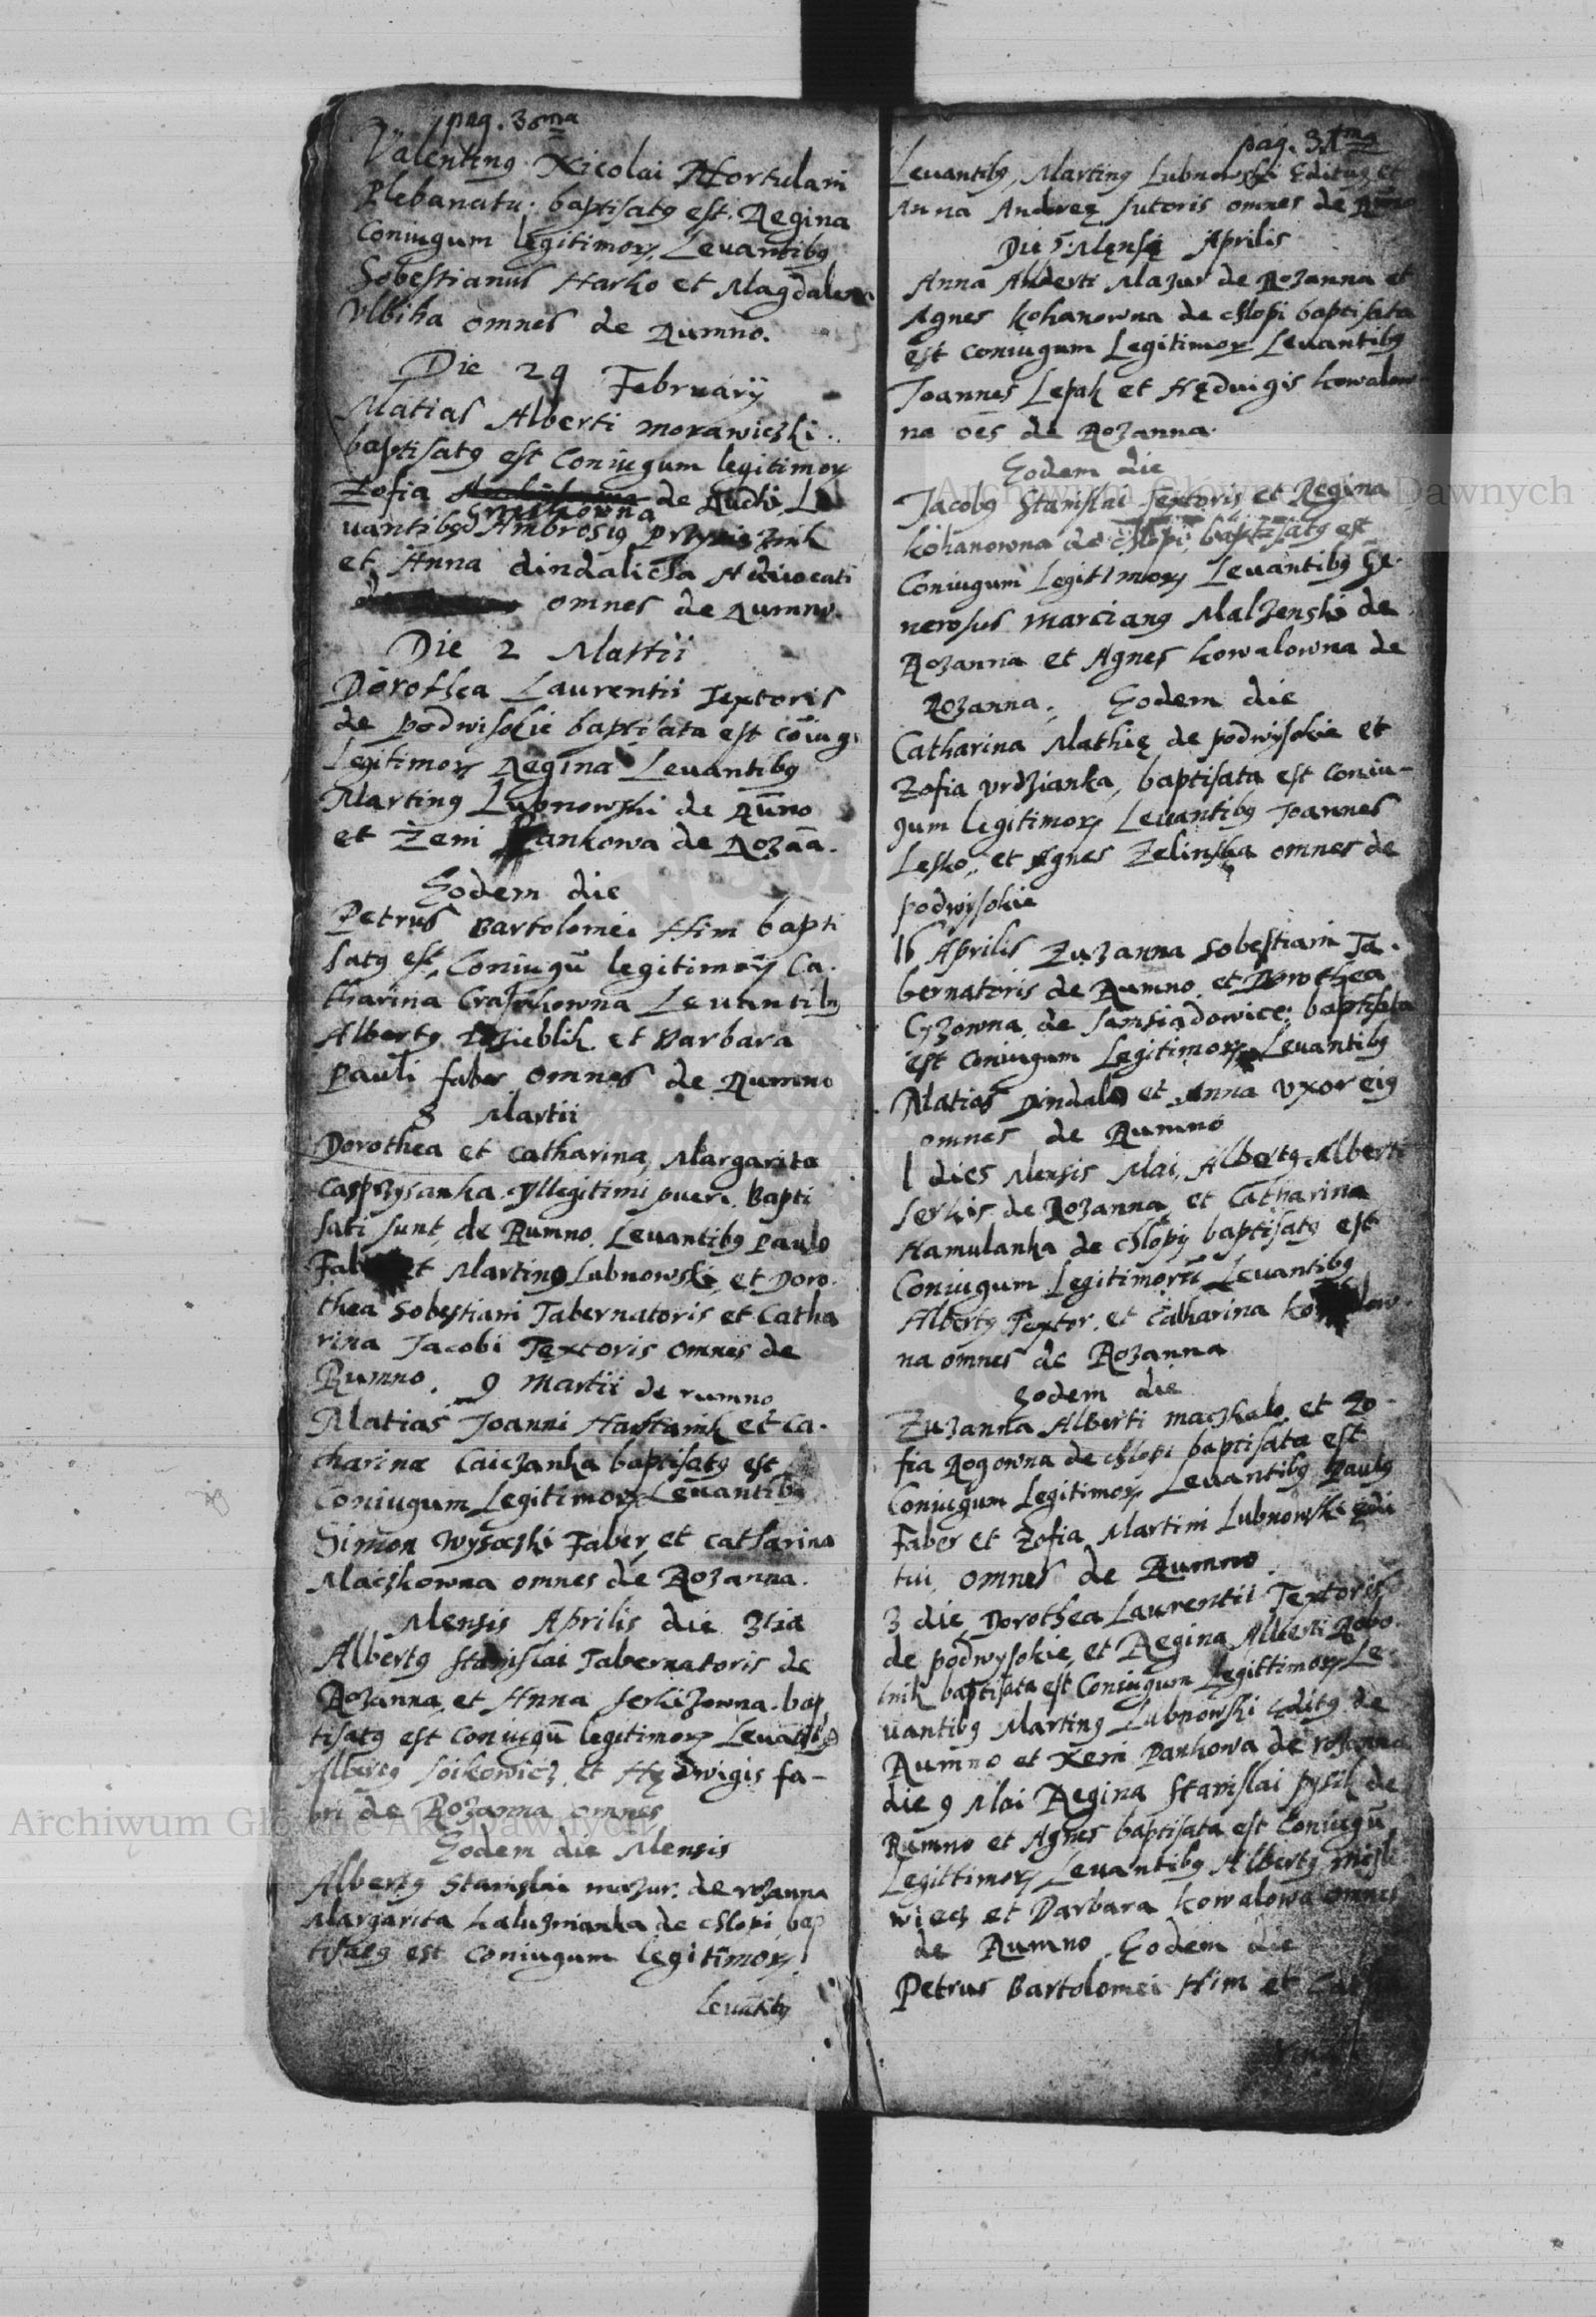 pag. 30ma
Valentinus Nicolai Hortulani
Plebanatu: baptisatus est. Regina
Coniugum legitimorum, Levantibus
Sobestianus Harko et Magdalena
Ulbika omnes de Rumno.
Die 29 February
Matias Alberti morawiczki
baptisatus est Coniugum legitimorum
Zofia de Rudki Le
vantibus Ambrosius
et Anna dindalicha Advocati
omnes de Rumno.
Die 2 Martii
Dorothea Laurentii Textoris
de podwisokie baptisata est coniug
Legitimorum Regina Levantibus
Martinus Lubnowski de Rumno
et Zeni Pankowa de Rozana.
Eodem die
Petrus Bartolomei Him bapti
satus est, Coniugum legitimorum Ca.
tharina Levantibus
Albertus et Barbara
Pauli faber omnes de Rumno
8 Martii
Dorothea et Catharina, Margarita
Casprzysanka yllegitimi pueri Bapti
sati sunt, de Rumno. Levantibus Paulo
Fab et Martinus Lubnowski, et Doro.
thea Sobestiani Tabernatoris et Catha
rina Jacobi Textoris omnes de
Rumno. 9 Martii de rumno
Matias Joanni et Ca.
tharina Caiczanka baptisatus est
Coniugum Legitimorum Levantibus
Simon Wysoczki Faber, et Catharina
Maczkowna omnes de Rozanna.
Mensis Aprilis die 3tia
Albertus Stanislai Tabernatoris de
Rozanna, et Anna Serkizowna. bap
tisatus est coniugum legitimorum Levantibus
Albertus Soikowicz, et Hedwigis fa-
bri de Rozanna omnes
Eodem die Mensis
Albertus Stanislai mazur. de rozanna
Margarita kaluznianka de chlopi bap
tisatus est Coniugum legitimorum
levantibus
pag. 31ma
Levantibus, Martinus Lubnowski Editus et
Anna Andreę sutoris omnes de Rumno
Die 5 Mensis Aprilis
Anna Alberti Mazur de Rozanna et
Agnes kohanowna de chlopi baptisata
est Coniugum Legitimorum Levantibus
Joannes Lepak et Hędvigis kowalow
na oēs de Rozanna.
Eodem die
Jacobus Stanislai Textoris et Regina
kohanowna de chlopi, baptisatus est
Coniugum Legitimorum Levantibus Ge.
nerosus Marcianus Malzenski de
Rozanna et Agnes kowalowna de
Rozanna. Eodem die
Catharina Mathię de podwysokie et
Zofia vrdzianka, baptisata est coniu-
gum legitimorum Levantibus Joannes
Lesko, et Agnes Zelinska omnes de
podwisokie
16 Aprilis Zuzanna Sobestiani Ta.
bernatoris de Rumno, et Dorothea
Czowna de Samsiadowice; baptisata
est Coniugum Legitimorum Levantibus
Matias Dindalo et Anna uxor eius
omnes de Rumno
1 dies Mensis Mai, Albertus Alberti
Serkis de Rozanna, et Catharina
Hamulanka de chlopy baptisatus est
Coniugum Legitimorū Levantibus
Albertus Textor, et Catharina
na omnes de Rozanna
Eodem die
Zuzanna Alberti maczkalo, et Zo-
fia Rogowna de chlopi baptisata est
Coniugum Legitimorum Levantibus Paulus
Faber et Zofia Martini Lubnowski edi
tui omnes de Rumno.
3 die Dorothea Laurentii Textoris
de podwysokie, et Regina Alberti Robo.
tnik baptisata est Coniugum Legittimorum Le-
vantibus Martinus Lubnowski Editus de
Rumno et Xeni Pankowa de rozanna
die 9 Mai Regina Stanislai pysik de
Rumno et Agnes baptisata est Coniugū
Legittimorum Levantibus Albertus
wiecz et Barbara kowalowa omnes
de Rumno. Eodem die
Petrus Bartolomei Him et Cat
Archiwum Główne Akt Dawnych